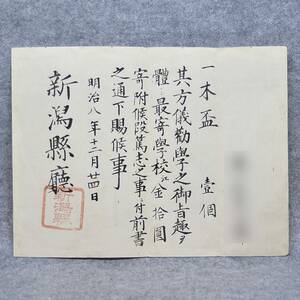 一木盃 壹個
其方儀勸學之御旨趣ヲ
體シ最寄學校江金拾圓
寄附候段篤志之事ニ付前書
之通下賜候事
明治八年十二月廿四日
新潟縣廳